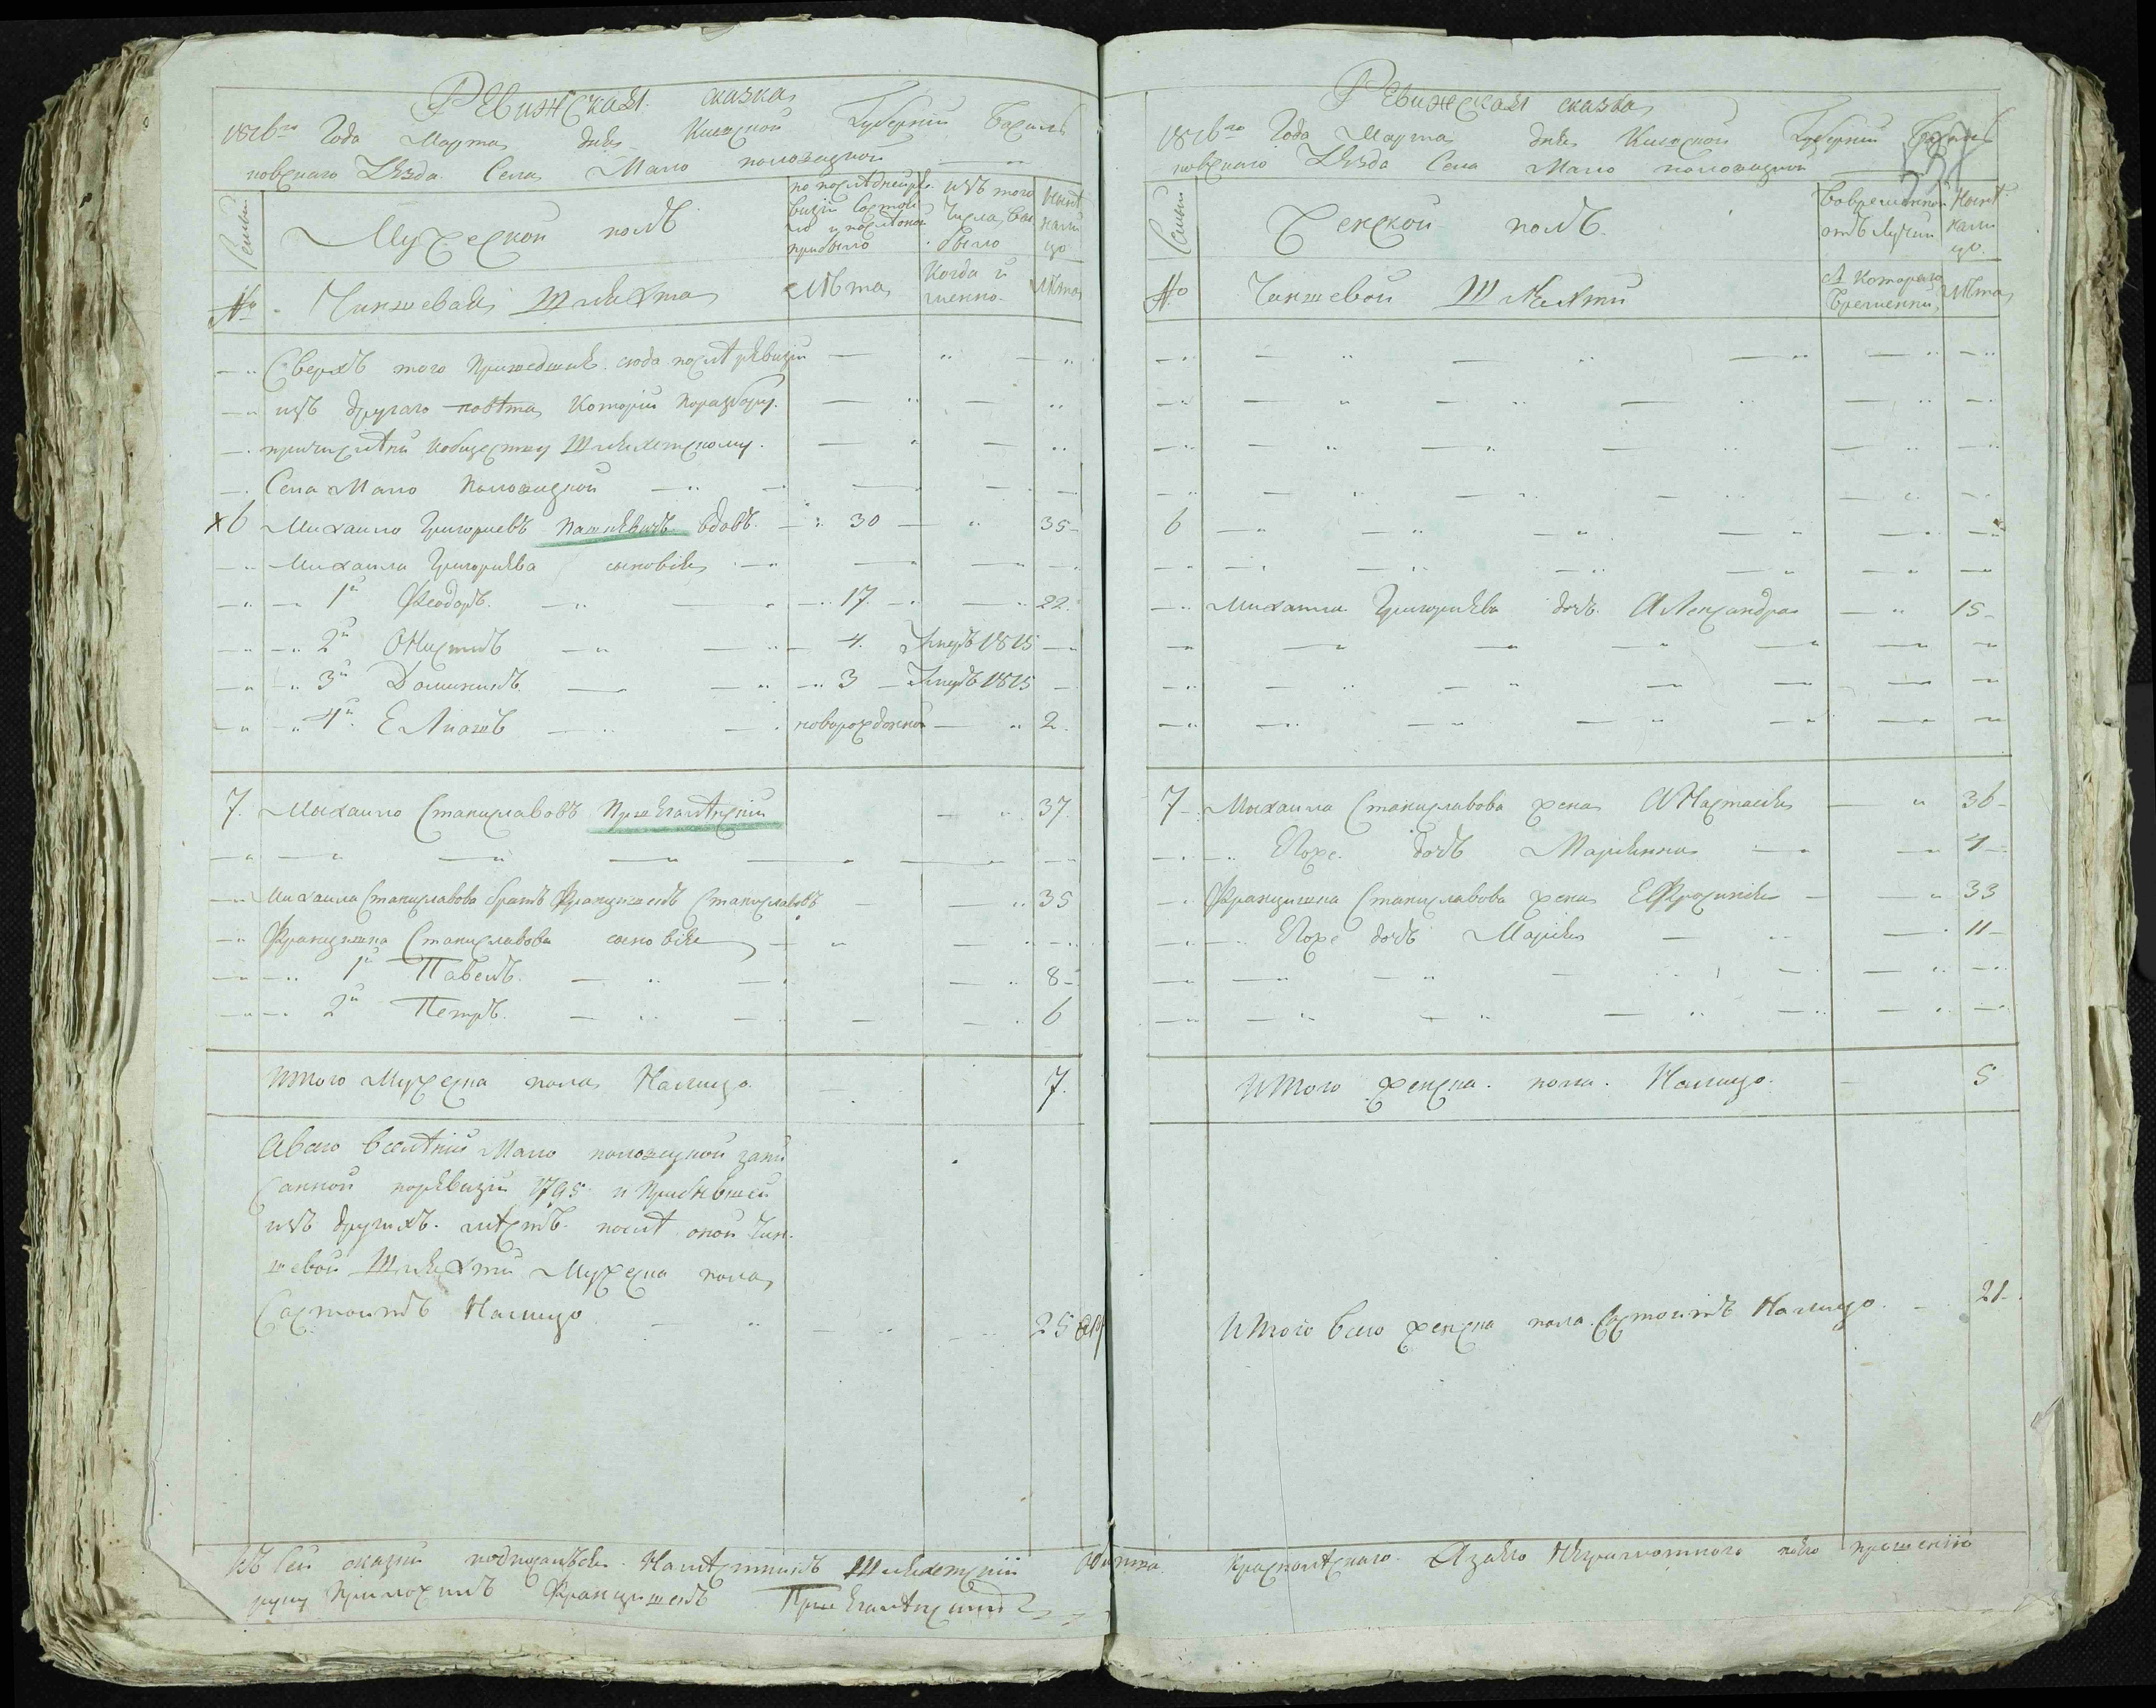 Ревижская сказка
1816го Года Марта дня Киевской Губернии Василь
ковскаго Уезда Села Мало половецкой
Семьи
Мужеской полъ
по последней ре
визии состои
ло и после оной
прибыло
изъ того
Числа, вы
было
Ныне
нали
цо
№
Чиншевая Шляхта
Лѣта
Когда и
менно
Лѣта
Сверхъ того Пришедшие сюда после ревизіи
изъ другаго повѣта которіи по разбору
причислѣни к обществу Шляхетскому
Села Мало Половецкой
6 Михаило Григориевъ Пашкевичъ вдовъ 30 35
Михаила Григориева сыновья
1й Феодоръ 17 22
2й Онистъ 4 Умеръ 1815
3й Доминикъ 3 Умеръ 1815
4й Елиашъ новорожденной 2
7 Михаило Станиславовъ 37
Михаила Станиславова братъ Францишекъ Станиславовъ 35
Францишка Станиславова сыновья
1й Павелъ 8
2й Петръ 6
Итого Мужеска пола Налицо 7
А всего в селѣнии Мало половецкой запи
санной по ревизіи 1795 и Прибывшей
изъ другихъ мѣстъ после оной Чин
шевой Шляхти Мужеска пола
Состоитъ Налицо 25
Къ сей сказки подписался Намѣстникъ Шляхетскій
руку Приложилъ Францишекъ
Ревижская сказка
1816го Года Марта дня Киевской Губернии Василь
ковскаго Уезда Села Мало половецкой
Семьи
Женской полъ
Во временной
отъ лучки
Ныне
нали
цо
№
Чиншевой Шляхти
С Котораго
Времени
Лѣта
6
Михаила Григориева дочь Александра 15
7 Михаила Станиславова жена Настасия 36
Ево же дочь Марианна 4
Францишка Станиславова жена Ефросиния 33
Ево же дочь Мария 11
Итого женска пола Налицо 5
Итого всего женска пола Состоитъ Налицо 21
А за его Неграмотного по его прошению